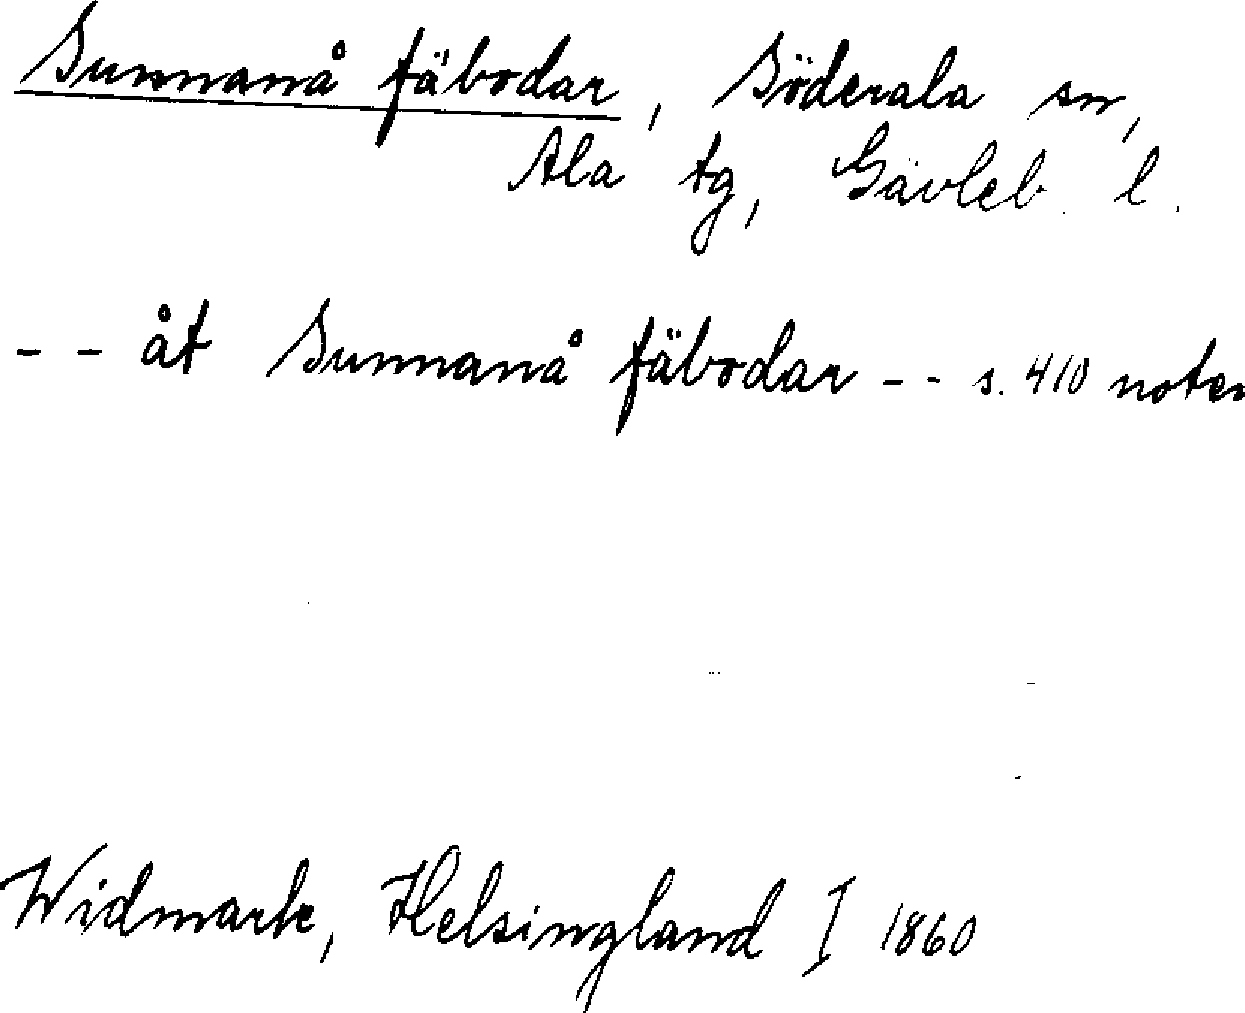 Sunnanå fäbodar, Söderala sn,
Ala tg, Gävleb. l.
- - åt Sunnanå fäbodar - - s. 410 noten
Widmark, Helsingland I 1860